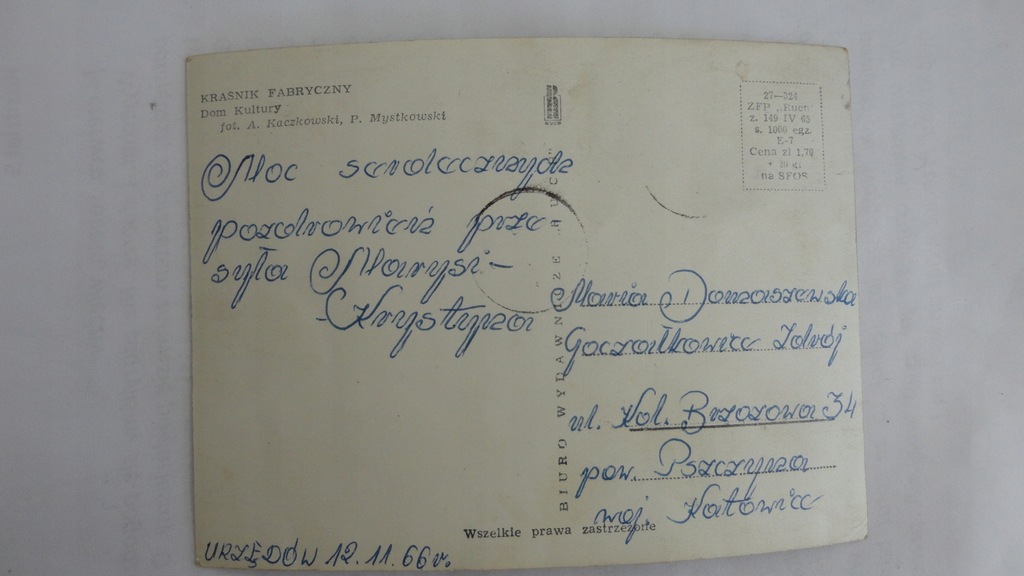 KRAŚNIK FABRYCZNY
Dom Kultury
fot. A. Kaczkowski, P. Mystkowski
Moc serdecznych
pozdrowień prze
syła Marysi-
-Krystyna
URZĘDÓW 12.11.66r.
BIURO WYDAWNICZE „RUCH"
27—324
ZFP „Ruch"
z. 149 IV 65
s. 1000 egz.
E-7
Cena zł 1,70
+ gr
na SFOS
Maria Domaszewska
Goczałkowice Zdrój
ul. Kol. Brzozowa 34
pow. Pszczyna
woj. Katowice
Wszelkie prawa zastrzeżone